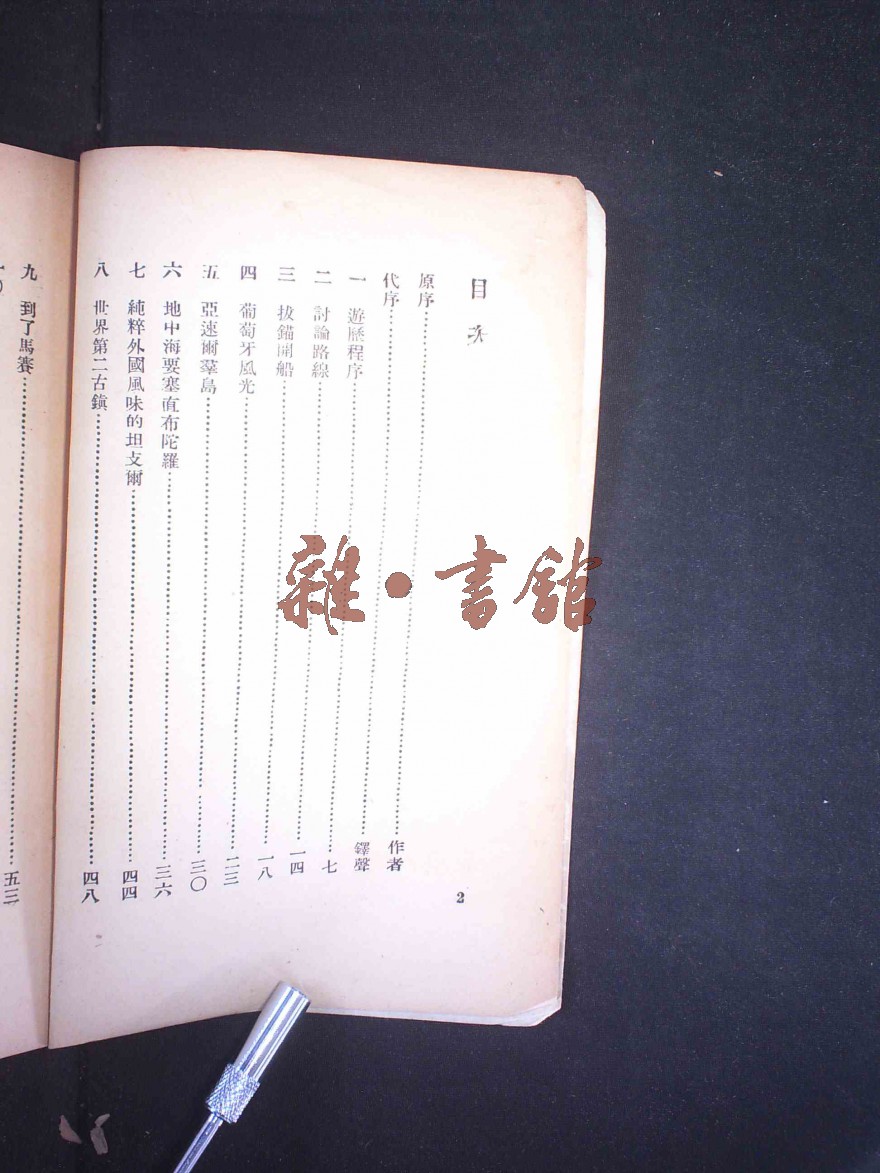 目次
原序……作者
代序……鐸聲
一 遊歷程序……七
二 討論路線……一四
三 拔錨開船……一八
四 葡萄牙風光……二三
五 亞速爾羣島……三〇
六 地中海要塞直布陀羅……三六
七 純粹外國風味的坦支爾……四四
八 世界第二古鎮……四八
九 到了馬賽……五三
一〇
2
雜・書館